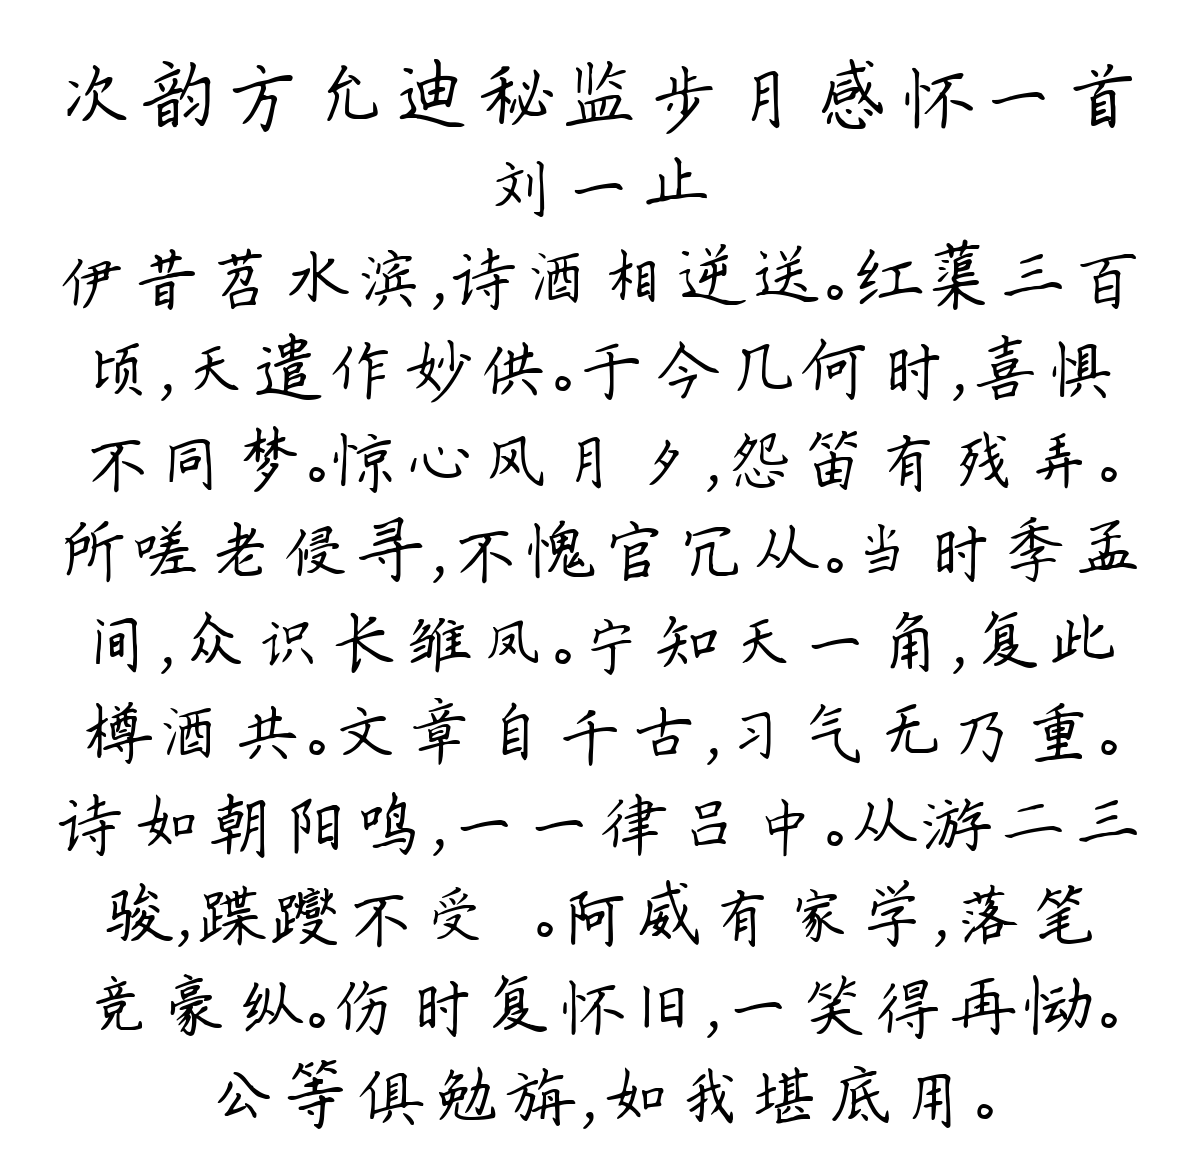 次韵方允迪秘监步月感怀一首
刘一止
伊昔苕水滨,诗酒相逆送。红蕖三百
顷,天遣作妙供。于今几何时,喜惧
不同梦。惊心风月夕,怨笛有残弄。
所嗟老侵寻,不愧官冗从。当时季孟
间,众识长雏凤。宁知天一角,复此
樽酒共。文章自千古,习气无乃重。
诗如朝阳鸣,一一律吕中。从游二三
骏,蹀躞不受 。阿威有家学,落笔
竞豪纵。伤时复怀旧,一笑得再恸。
公等俱勉旃,如我堪底用。